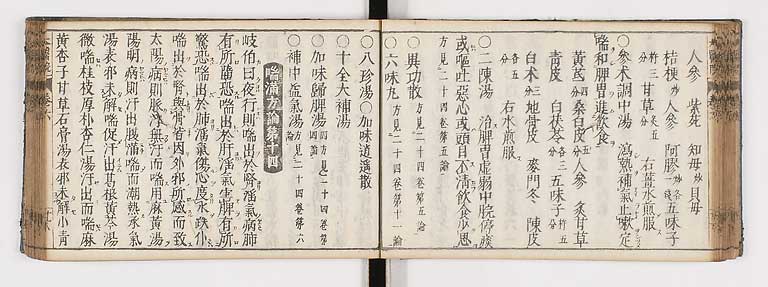 人參 紫苑 知母炒 貝母
桔梗炒 人參 阿膠炒各 五味子
甘草炙五 右薑水煎服
○參朮調中湯 瀉熱補氣止嗽定
喘和脾胃進飲食
黃芪四 桑白皮五分 人參 炙甘草
靑皮 白茯苓各三分 五味子
白朮三分 地骨皮 麥門冬 陳皮
各五 右水煎服
○二陳湯 治脾胃虛弱中脘停痰
或嘔吐惡心或頭目不淸飲食少思
方見二十四卷第五論
○異功散 方見二十四卷第五論
○六味丸 方見二十四卷第十一論
○八珍湯 ○加味逍遙散
○十全大補湯
○加味歸脾湯 四方見二十四卷第四論
○補中益氣湯 方見二十四卷第六論
喘滿方論第十四
岐伯曰夜行則喘出於腎淫氣病肺
有所墮恐喘出於肝淫氣害脾有所
驚恐喘出於肺淫氣傷心度水跌仆
喘出於腎與骨皆因外邪所感而致
太陽病則脈浮無汗而喘用麻黃湯
陽明病則汗出腹滿喘而潮熱承氣
湯表邪未解喘促汗出葛根黃芩湯
微喘桂枝厚朴杏仁湯汗出而喘麻
黃杏子甘草石膏湯表邪未解小靑